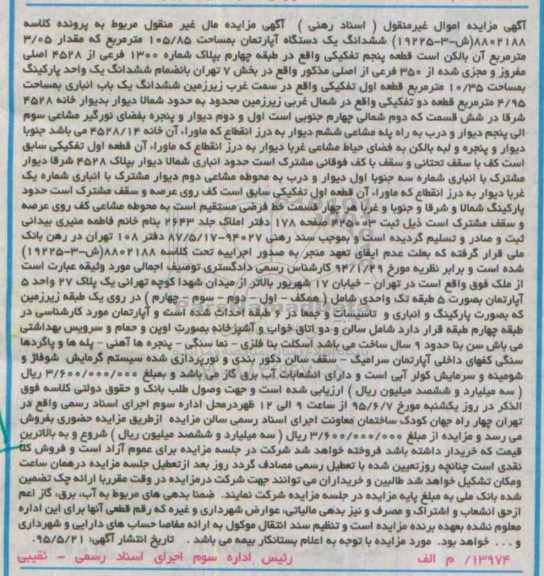 آگهی مزایده اموال غیرمنقول ( اسناد رهنی ) آگهی مزایده مال غیر منقول مربوط به پرونده کلاسه
۸۸۰۲۱۸۸(ش-۳-۱۹۲۲۵) ششدانگ یک دستگاه آپارتمان بمساحت ۱۰۵/۸۵ مترمربع که مقدار ۳/۰۵
مترمربع آن بالکن است قطعه پنجم تفکیکی واقع در طبقه چهارم بپلاک شماره ۱۳۰۰ فرعی از ۴۵۲۸ اصلی
مفروز و مجزی شده از ۳۵۰ فرعی از اصلی مذکور واقع در بخش ۷ تهران بانضمام ششدانگ یک واحد پارکینگ
بمساحت ۱۰/۳۵ مترمربع قطعه اول تفکیکی واقع در سمت غرب زیرزمین ششدانگ یک باب انباری بمساحت
۴/۹۵ مترمربع قطعه دو تفکیکی واقع در شمال غربی زیرزمین محدود به حدود شمالا دیوار بدیوار خانه ۴۵۲۸
شرقا در شش قسمت که دوم شمالی چهارم جنوبی است اول و دوم دیوار و پنجره بفضای نورگیر مشاعی سوم
الی پنجم دیوار و درب به راه پله مشاعی ششم دیوار به درز انقطاع که ماوراء آن خانه ۴۵۲۸/۱۴ می باشد جنوبا
دیوار و پنجره و لبه بالکن به فضای حیاط مشاعی غربا دیوار به درز انقطاع که ماوراء آن قطعه اول تفکیکی سابق
است کف با سقف تحتانی و سقف با کف فوقانی مشترک است حدود انباری شمالا دیوار بپلاک ۴۵۲۸ شرقا دیوار
مشترک با انباری شماره سه جنوبا اول دیوار و درب به محوطه مشاعی دوم دیوار مشترک با انباری شماره یک
غربا دیوار به درز انقطاع که ماوراء آن قطعه اول تفکیکی سابق است کف روی عرصه و سقف مشترک است حدود
پارکینگ شمالا و شرقا و جنوبا و غربا هر چهار قسمت خط فرضی مستقیم است به محوطه مشاعی کف روی عرصه
و سقف مشترک است ذیل ثبت ۴۴۵۰۳ صفحه ۱۷۸ دفتر املاک جلد ۲۶۴۳ بنام خانم فاطمه منیری بیدانی
ثبت و صادر و تسلیم گردیده است و بموجب سند رهنی ۹۴۰۲۷-۸۷/۵/۱۷ دفتر ۱۰۸ تهران در رهن بانک
ملی قرار گرفته که بعلت عدم ایفای تعهد منجر به صدور اجراییه تحت کلاسه ۸۸۰۲۱۸۸(ش-۳-۱۹۲۲۵)
شده است و برابر نظریه مورخ ۹۴/۱/۲۹ کارشناس رسمی دادگستری توصیف اجمالی مورد وثیقه عبارت است
از ملک فوق واقع است در تهران - خیابان ۱۷ شهریور بالاتر از میدان شهدا کوچه تهرانی یک پلاک ۲۷ واحد ۵
آپارتمان بصورت ۵ طبقه تک واحدی شامل ( همکف - اول - دوم - سوم - چهارم ) در روی یک طبقه زیرزمین
که بصورت پارکینگ و انباری و تاسیسات و جمعا در ۶ طبقه احداث شده است و آپارتمان مورد کارشناسی در
طبقه چهارم طبقه قرار دارد شامل سالن و دو اتاق خواب و آشپزخانه بصورت اوپن و حمام و سرویس بهداشتی
می باش سن بنا حدود ۹ سال ساخت می باشد اسکلت بنا فلزی - نما سنگی - پنجره ها آهنی - پله ها و پاگردها
سنگی کفهای داخلی آپارتمان سرامیک - سقف سالن دکور بندی و نورپردازی شده سیستم گرمایش شوفاژ و
شومینه و سرمایش کولر آبی است و دارای انشعابات آب برق گاز می باشد و بمبلغ ۳/۶۰۰/۰۰۰/۰۰۰ ریال
( سه میلیارد و ششصد میلیون ریال ) ارزیابی شده است و جهت وصول طلب بانک و حقوق دولتی کلاسه فوق
الذکر در روز یکشنبه مورخ ۹۵/۶/۷ از ساعت ۹ الی ۱۲ ظهردرمحل اداره سوم اجرای اسناد رسمی واقع در
تهران چهار راه جهان کودک ساختمان معاونت اجرای اسناد رسمی سالن مزایده ازطریق مزایده حضوری بفروش
می رسد و مزایده از مبلغ ۳/۶۰۰/۰۰۰/۰۰۰ ریال ( سه میلیارد و ششصد میلیون ریال ) شروع و به بالاترین
قیمت که خریدار داشته باشد فروخته خواهد شد شرکت در جلسه مزایده برای عموم آزاد است و فروش کلا
نقدی است چنانچه روزتعیین شده با تعطیل رسمی مصادف گردد روز بعد ازتعطیل جلسه مزایده درهمان ساعت
ومکان تشکیل خواهد شد طالبین و خریداران می توانند جهت شرکت درمزایده در وقت مقرربا ارائه چک تضمین
شده بانک ملی به مبلغ پایه مزایده در جلسه مزایده شرکت نمایند. ضمنا بدهی های مربوط به آب، برق، گاز اعم
ازحق انشعاب و اشتراک و مصرف و نیز بدهی مالیاتی، عوارض شهرداری و غیره که رقم قطعی آنها برای این اداره
معلوم نشده بعهده برنده مزایده است و تنظیم سند انتقال موکول به ارائه مفاصا حساب های دارایی و شهرداری
و ... خواهد بود. مورد مزایده با توجه به اعلام بستانکار بیمه می باشد . تاریخ انتشار آگهی: ۹۵/۵/۲۱.
۱۳۹۷۴/ م الف رئیس اداره سوم اجرای اسناد رسمی - نقیبی